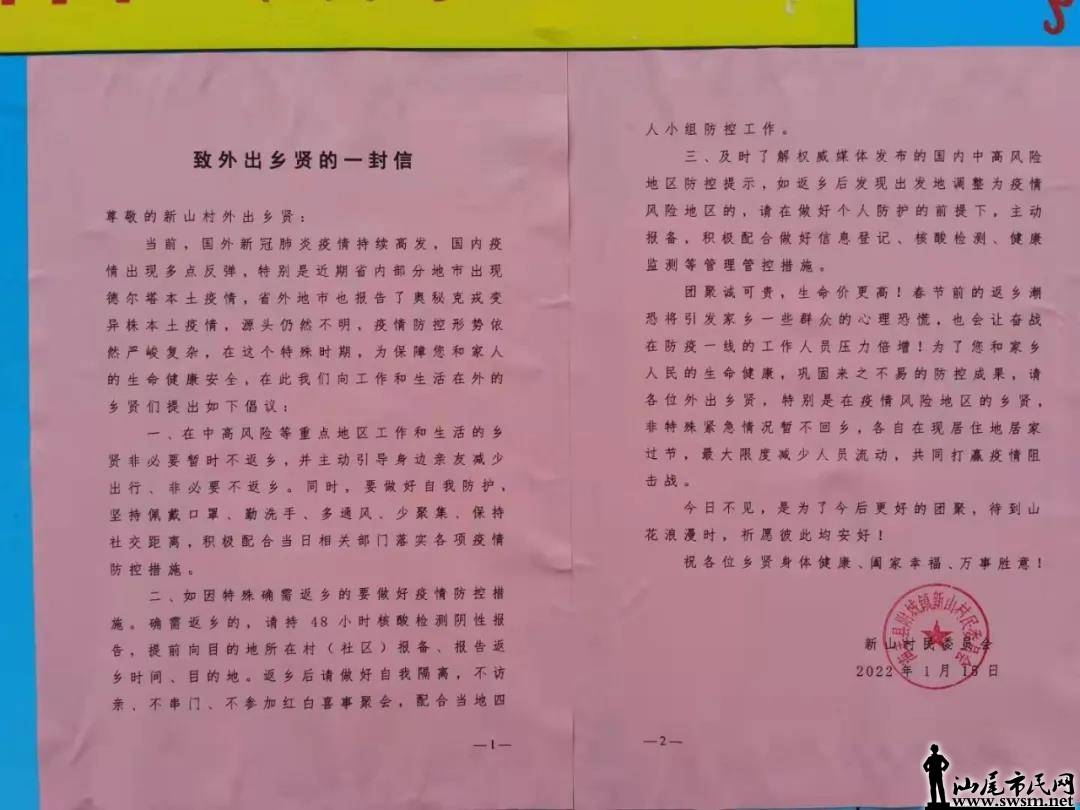 致外出乡贤的一封信
尊敬的新山村外出乡贤：
当前，国外新冠肺炎疫情持续高发，国内疫
情出现多点反弹，特别是近期省内部分地市出现
德尔塔本土疫情，省外地市也报告了奥秘克戎变
异株本土疫情，源头仍然不明，疫情防控形势依
然严峻复杂，在这个特殊时期，为保障您和家人
的生命健康安全，在此我们向工作和生活在外的
乡贤们提出如下倡议：
一、在中高风险等重点地区工作和生活的乡
贤非必要暂时不返乡，并主动引导身边亲友减少
出行、非必要不返乡。同时，要做好自我防护，
坚持佩戴口罩、勤洗手、多通风、少聚集、保持
社交距离，积极配合当日相关部门落实各项疫情
防控措施。
二、如因特殊确需返乡的要做好疫情防控措
施。确需返乡的，请持 48 小时核酸检测阴性报
告，提前向目的地所在村（社区）报备、报告返
乡时间、目的地。返乡后请做好自我隔离，不访
亲、不串门、不参加红白喜事聚会，配合当地四
—1—
人小组防控工作。
三、及时了解权威媒体发布的国内中高风险
地区防控提示，如返乡后发现出发地调整为疫情
风险地区的，请在做好个人防护的前提下，主动
报备，积极配合做好信息登记、核酸检测、健康
监测等管理管控措施。
团聚诚可贵，生命价更高！春节前的返乡潮
恐将引发家乡一些群众的心理恐慌，也会让奋战
在防疫一线的工作人员压力倍增！为了您和家乡
人民的生命健康，巩固来之不易的防控成果，请
各位外出乡贤，特别是在疫情风险地区的乡贤，
非特殊紧急情况暂不回乡，各自在现居住地居家
过节，最大限度减少人员流动，共同打赢疫情阻
击战。
今日不见，是为了今后更好的团聚，待到山
花浪漫时，祈愿彼此均安好！
祝各位乡贤身体健康、阖家幸福、万事胜意！
新山村民委员会
2022 年 1 月 15 日
—2—
汕尾市民网
www.swsm.net